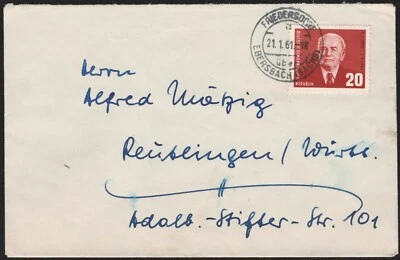 FRIEDERSDORF
a
21.1.61-18
über
EBERSBACH (SACHS)
20
Herrn
Alfred Mätzig
Reutlingen / Württ.
Adalb.-Stifter-Str. 101